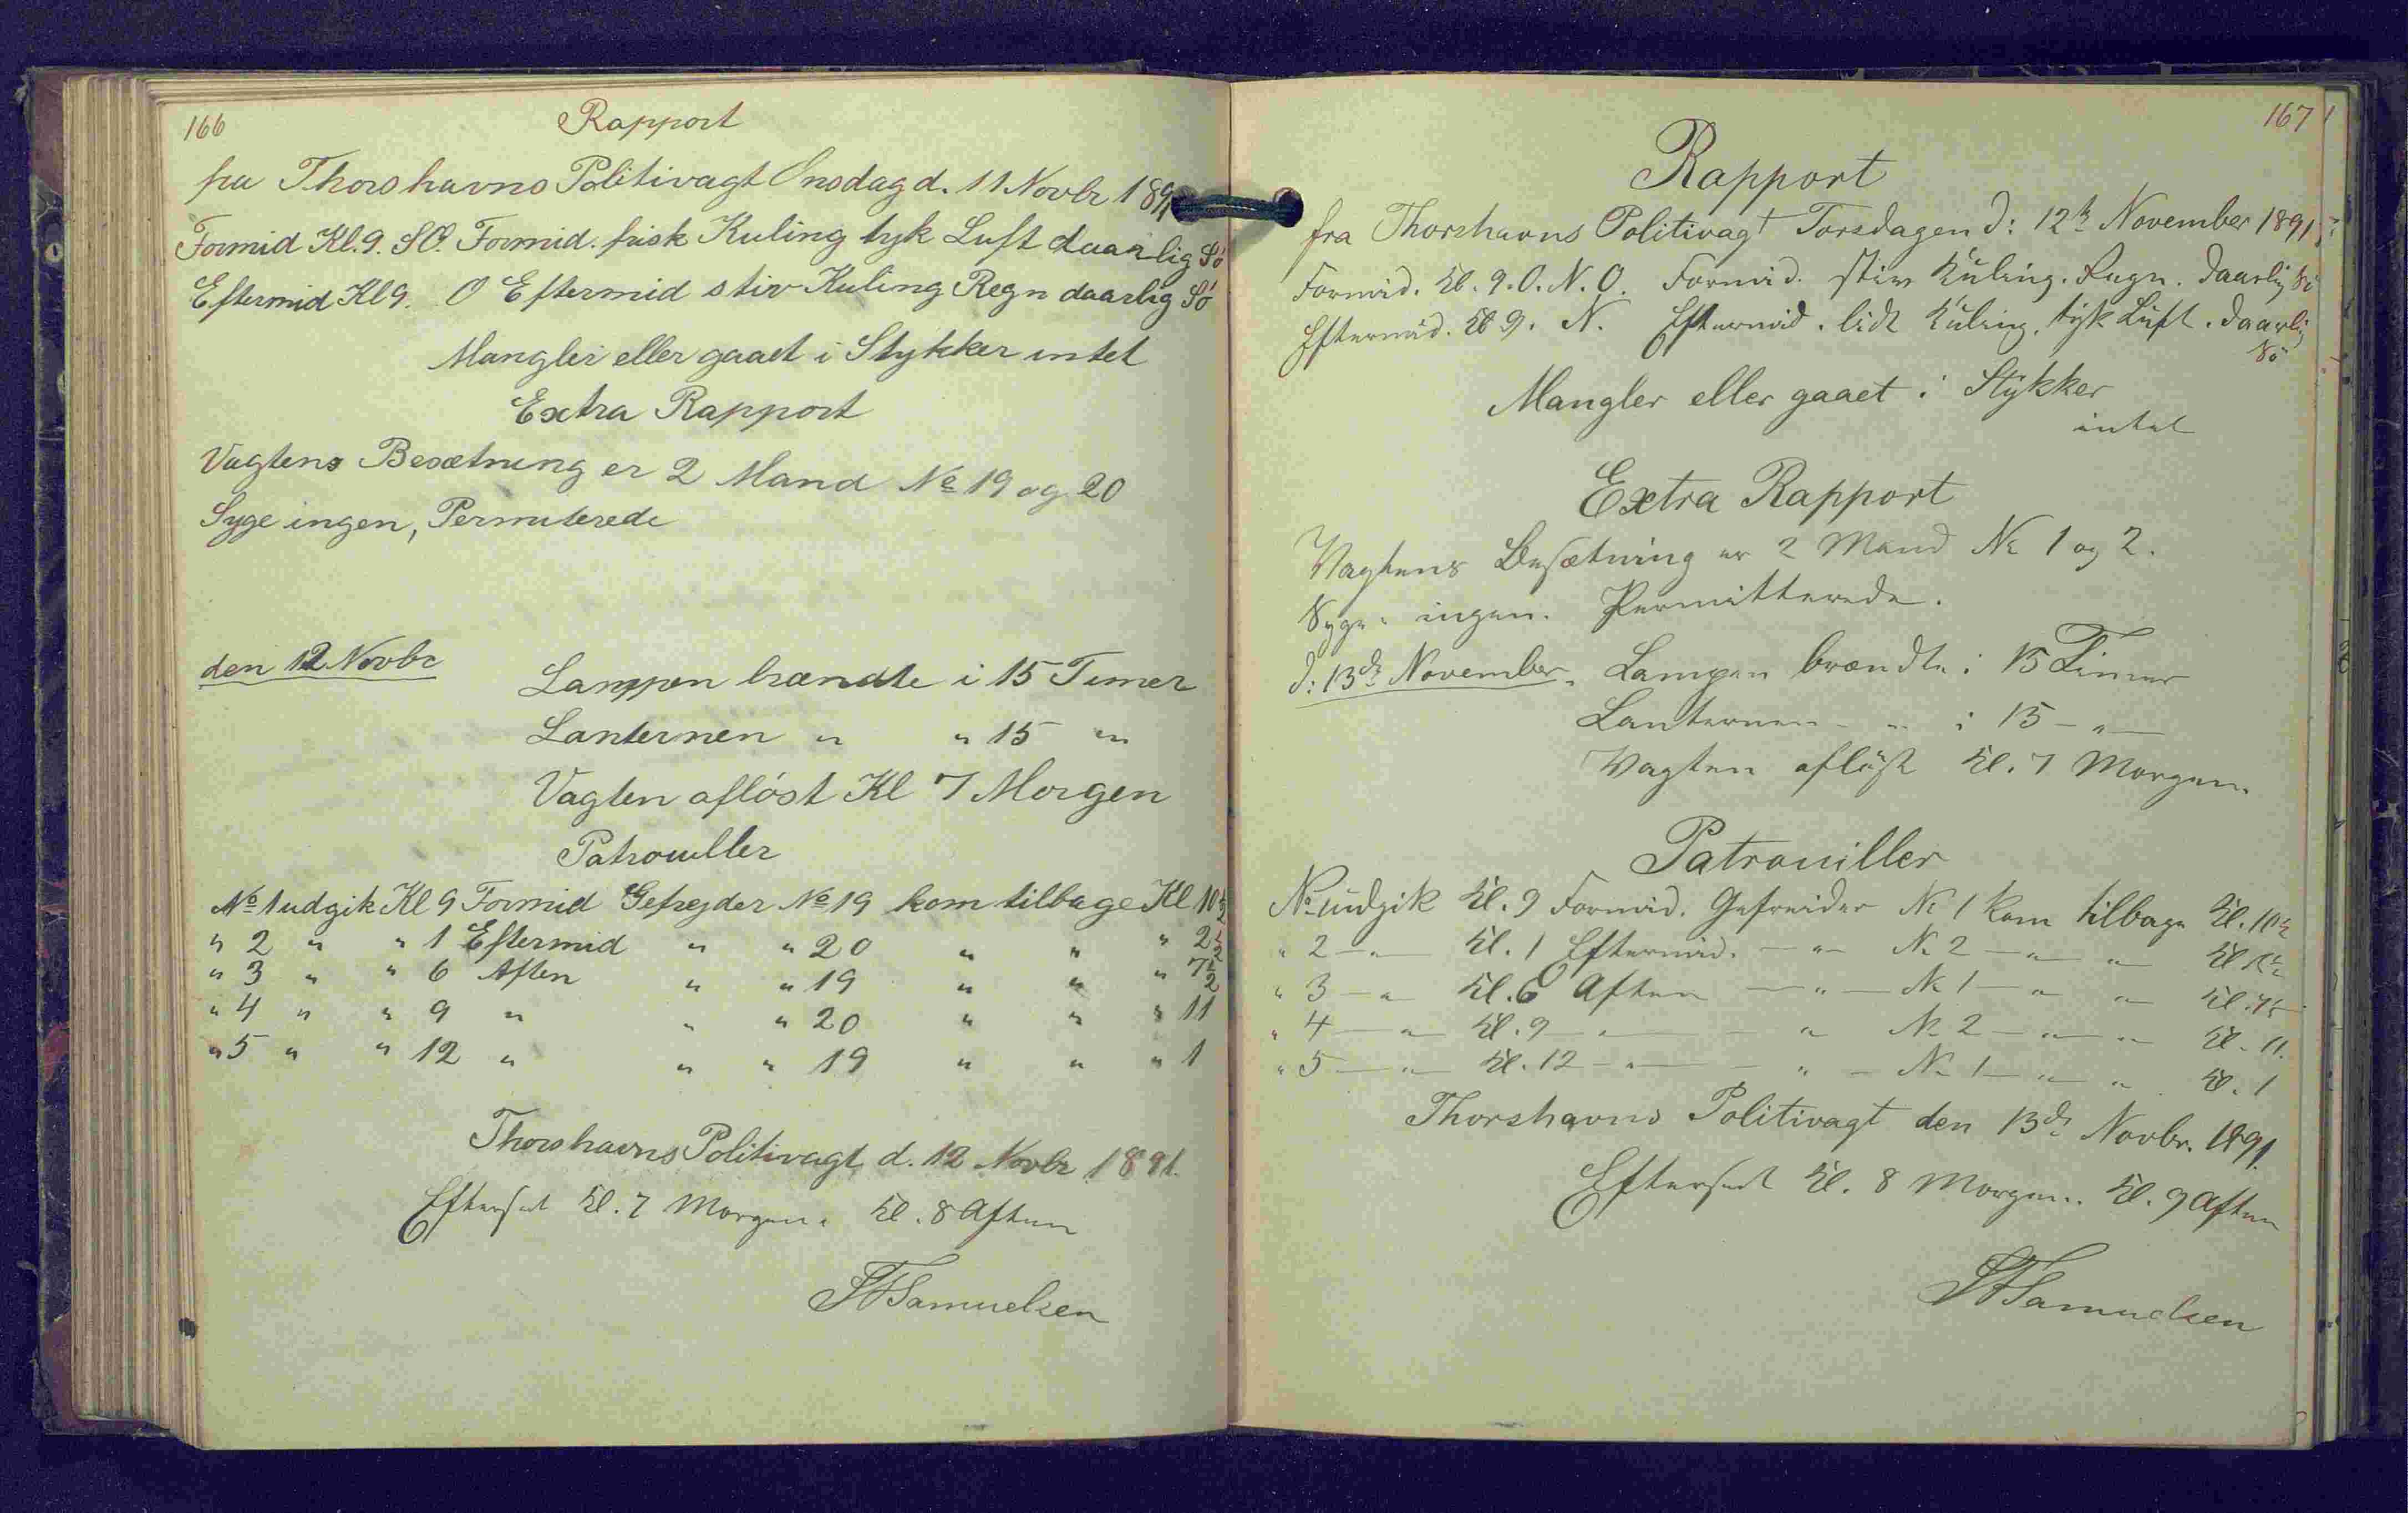 166
Rapport
fra Thorshavns Politivagt Onsdag d. 11 Novbr 1891
Formid Kl. 9. SO. Formid. frisk Kuling tyk Luft daarlig Sö
Eftermid Kl 9. O Eftermid stiv Kuling Regn daarlig Sö
Mangler eller gaaet i Stykker intet
Extra Rapport
Vagtens Besætning er 2 Mand No 19 og 20
Syge ingen, Permiterede
den 12 Novbr
Lampen brændte i 15 Timer
Lanternen " " 15 "
Vagten aflöst Kl 7 Morgen
Patrouiller
No 1 udgik Kl 9 Formid Gefrejder No 19 kom tilbage Kl 10½
" 2 " " 1 Eftermid " " 20 " " " 2½
" 3 " " 6 Aften " " 19 " " " 7½
" 4 " " 9 " " " 20 " " " 11
" 5 " " 12 " " " 19 " " " 1
Thorshavns Politivagt d. 12 Novbr 1891.
Efterset Kl. 7 Morgen. Kl. 8 Aften
Samuelsen
167
Rapport
fra Thorshavns Politivagt Torsdagen d: 12te November 1891
Formid. Kl. 9. O.N.O. Formid. stiv Kuling. Regn. daarlig Sö
Eftermid. Kl 9. N. Eftermid. lidt Kuling, tyk Luft. daarlig
Sö
Mangler eller gaaet i Stykker
intet
Extra Rapport
Vagtens Besætning er 2 Mand No 1 og 2.
Syge. ingen. Permitterede.
d: 13de November. Lampen brændte i 15 Timer
Lanternen - " i 15 - " -
Vagten aflöst Kl. 7 Morgen.
Patrouiller
No 1 udgik Kl. 9 Formid. Gefreider No 1 kom tilbage Kl. 10½
" 2 - " - Kl. 1 Eftermid. - " - No 2 - " - " - Kl
" 3 - " - Kl. 6 Aften - " - No 1 - " - " - Kl. 7½
" 4 - " - Kl. 9 - " - " No 2 - " - " - Kl. 11.
" 5 - " - Kl. 12 - " - " - No 1 - " - " Kl. 1
Thorshavns Politivagt den 13de Novbr. 1891.
Efterset Kl. 8 Morgen. Kl. 9 Aften
Samuelsen